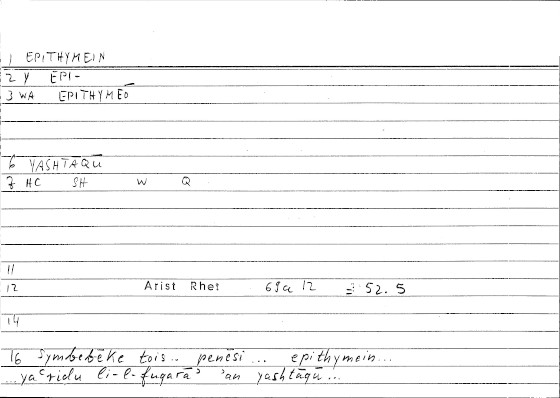 1 EPITHYMEIN
2 Y EPI-
3 WA EPITHYMEŌ
6 YASHTĀQŪ
7 HC SH W Q
11
12 Arist Rhet 69a 12 = 52.5
14
16 Symbebēke tois.. penēsi... epithymein...
...yaᶜriḍu li-l-fuqarāʾ ʾan yashtāqū...